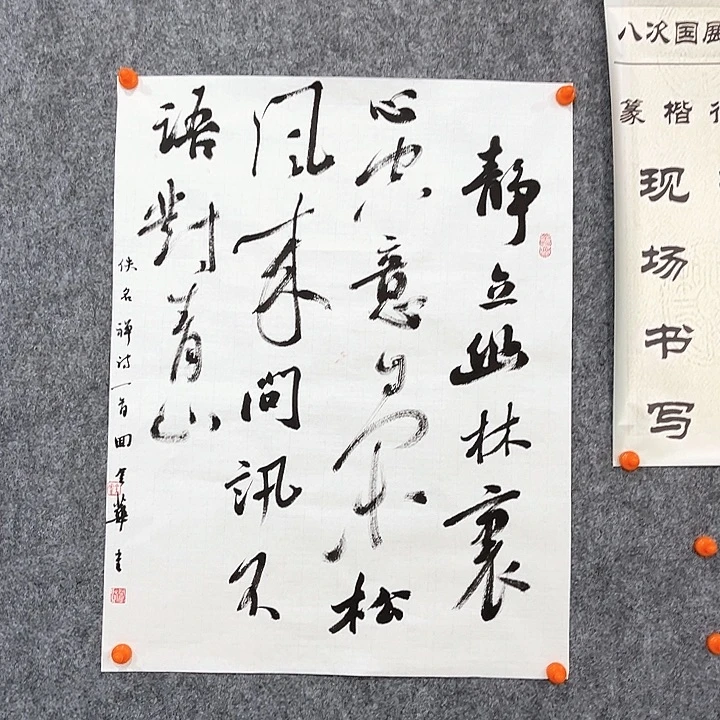 静立幽林裏
心空意自闲松
风来問訊不
語對青山
佚名禅诗一首田金華书
八次国展
篆楷
现场书写